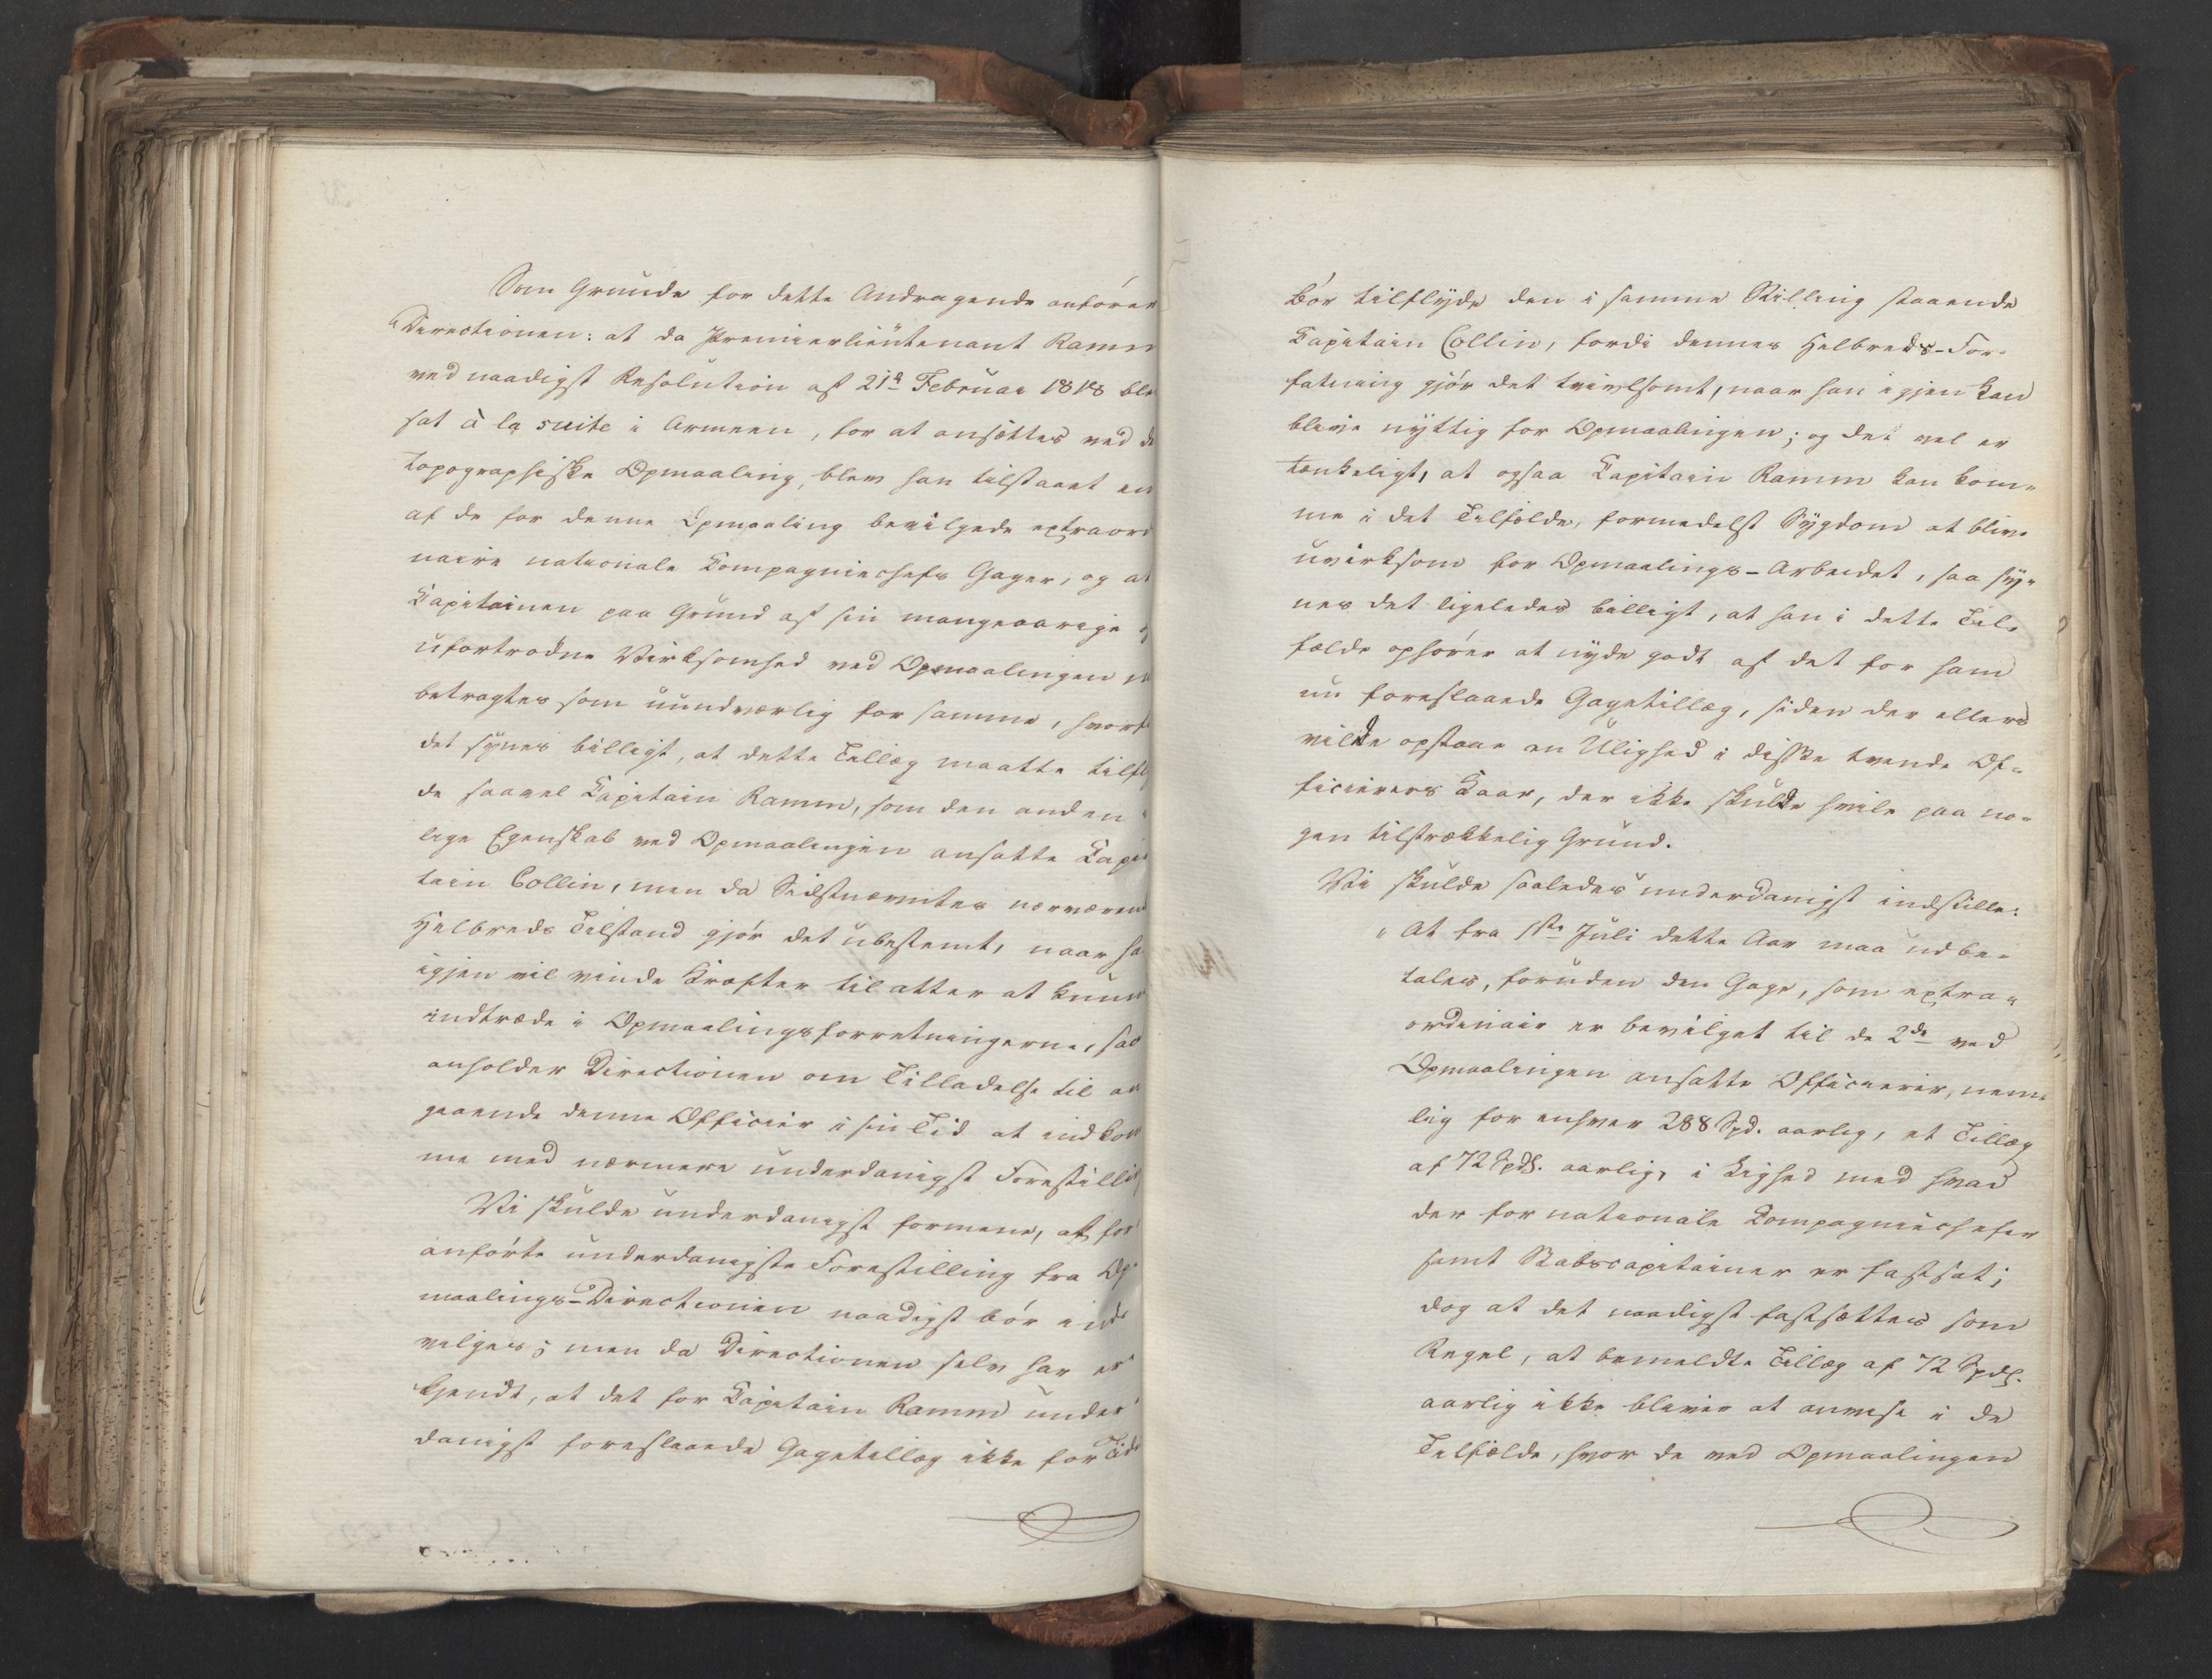 Som Grunde for dette Andragende anfører
Directionen: at da Premierlieutenant Ramm
ved naadigst Resolution af 21de Februar 1818 blev
sat à la suite i Armeen, for at ansættes ved de
topographiske Opmaaling, blev han tilstaaet en
af de for denne Opmaaling bevilgede extraord
naire nationale Compagniechefs Gager, og at
Capitainen paa Grund af sin mangeaarige og
ufortrødne Virksomhed ved Opmaalingen
betragtes som uundværlig for samme, hvorfo
det synes billigt, at dette Tillæg maatte tilfly
de saavel Capitain Ramm, som den anden i
lige Egenskab ved Opmaalingen ansatte Capi
tain Collin, men da Sidstnævntes nærværend
Helbreds Tilstand gjør det ubestemt, naar ha
igjen vil vinde Kræfter til atter at kunne
indtræde i Opmaalingsforretningerne, saa
anholder Directionen om Tilladelse til an
gaaende denne Officier i sin Tid at indkom
me med nærmere underdanigst Forestilling
Vi skulde underdanigst formene, at for
anførte underdanigste Forestilling fra Op-
maalings-Directionen naadigst bør ind-
vilges; men da Directionen selv har er-
kjendt, at det for Capitain Ramm under-
danigst foreslaaede Gagetillæg ikke for Tide
bør tilflyde den i samme Stilling staaende
Capitain Collin, fordi dennes Helbreds-For-
fatning gjør det tvivlsomt, naar han igjen kan
blive nyttig for Opmaalingen; og det vel er
tænkeligt, at ogsaa Capitain Ramm kan kom-
me i det Tilfælde, formedelst Sygdom at blive
uvirksom for Opmaalings-Arbeidet, saa sy-
nes det ligeledes billigt, at han i dette Til-
fælde ophører at nyde godt af det for ham
nu foreslaaede Gagetillæg, siden der ellers
vilde opstaae en Ulighed i disse tvende Of-
ficierers Kaar, der ikke skulde hvile paa no-
gen tilstrækkelig Grund.
Vi skulde saaledes underdanigst indstille:
" At fra 1ste Juli dette Aar maa udbe-
tales, foruden den Gage, som extra-
ordinair er bevilget til de 2de ved
Opmaalingen ansatte Officierer, nem-
lig for enhver 288 Spd. aarlig, et Tillæg
af 72 Spdl. aarlig, i Lighed med hvad
der for nationale Compagniechefer
samt Stabscapitainer er fastsat;
dog at det naadigst fastsættes som
Regel, at bemeldte Tillæg af 72 Spdl.
aarlig ikke bliver at anvise i de
Tilfælde, hvor de ved Opmaalingen